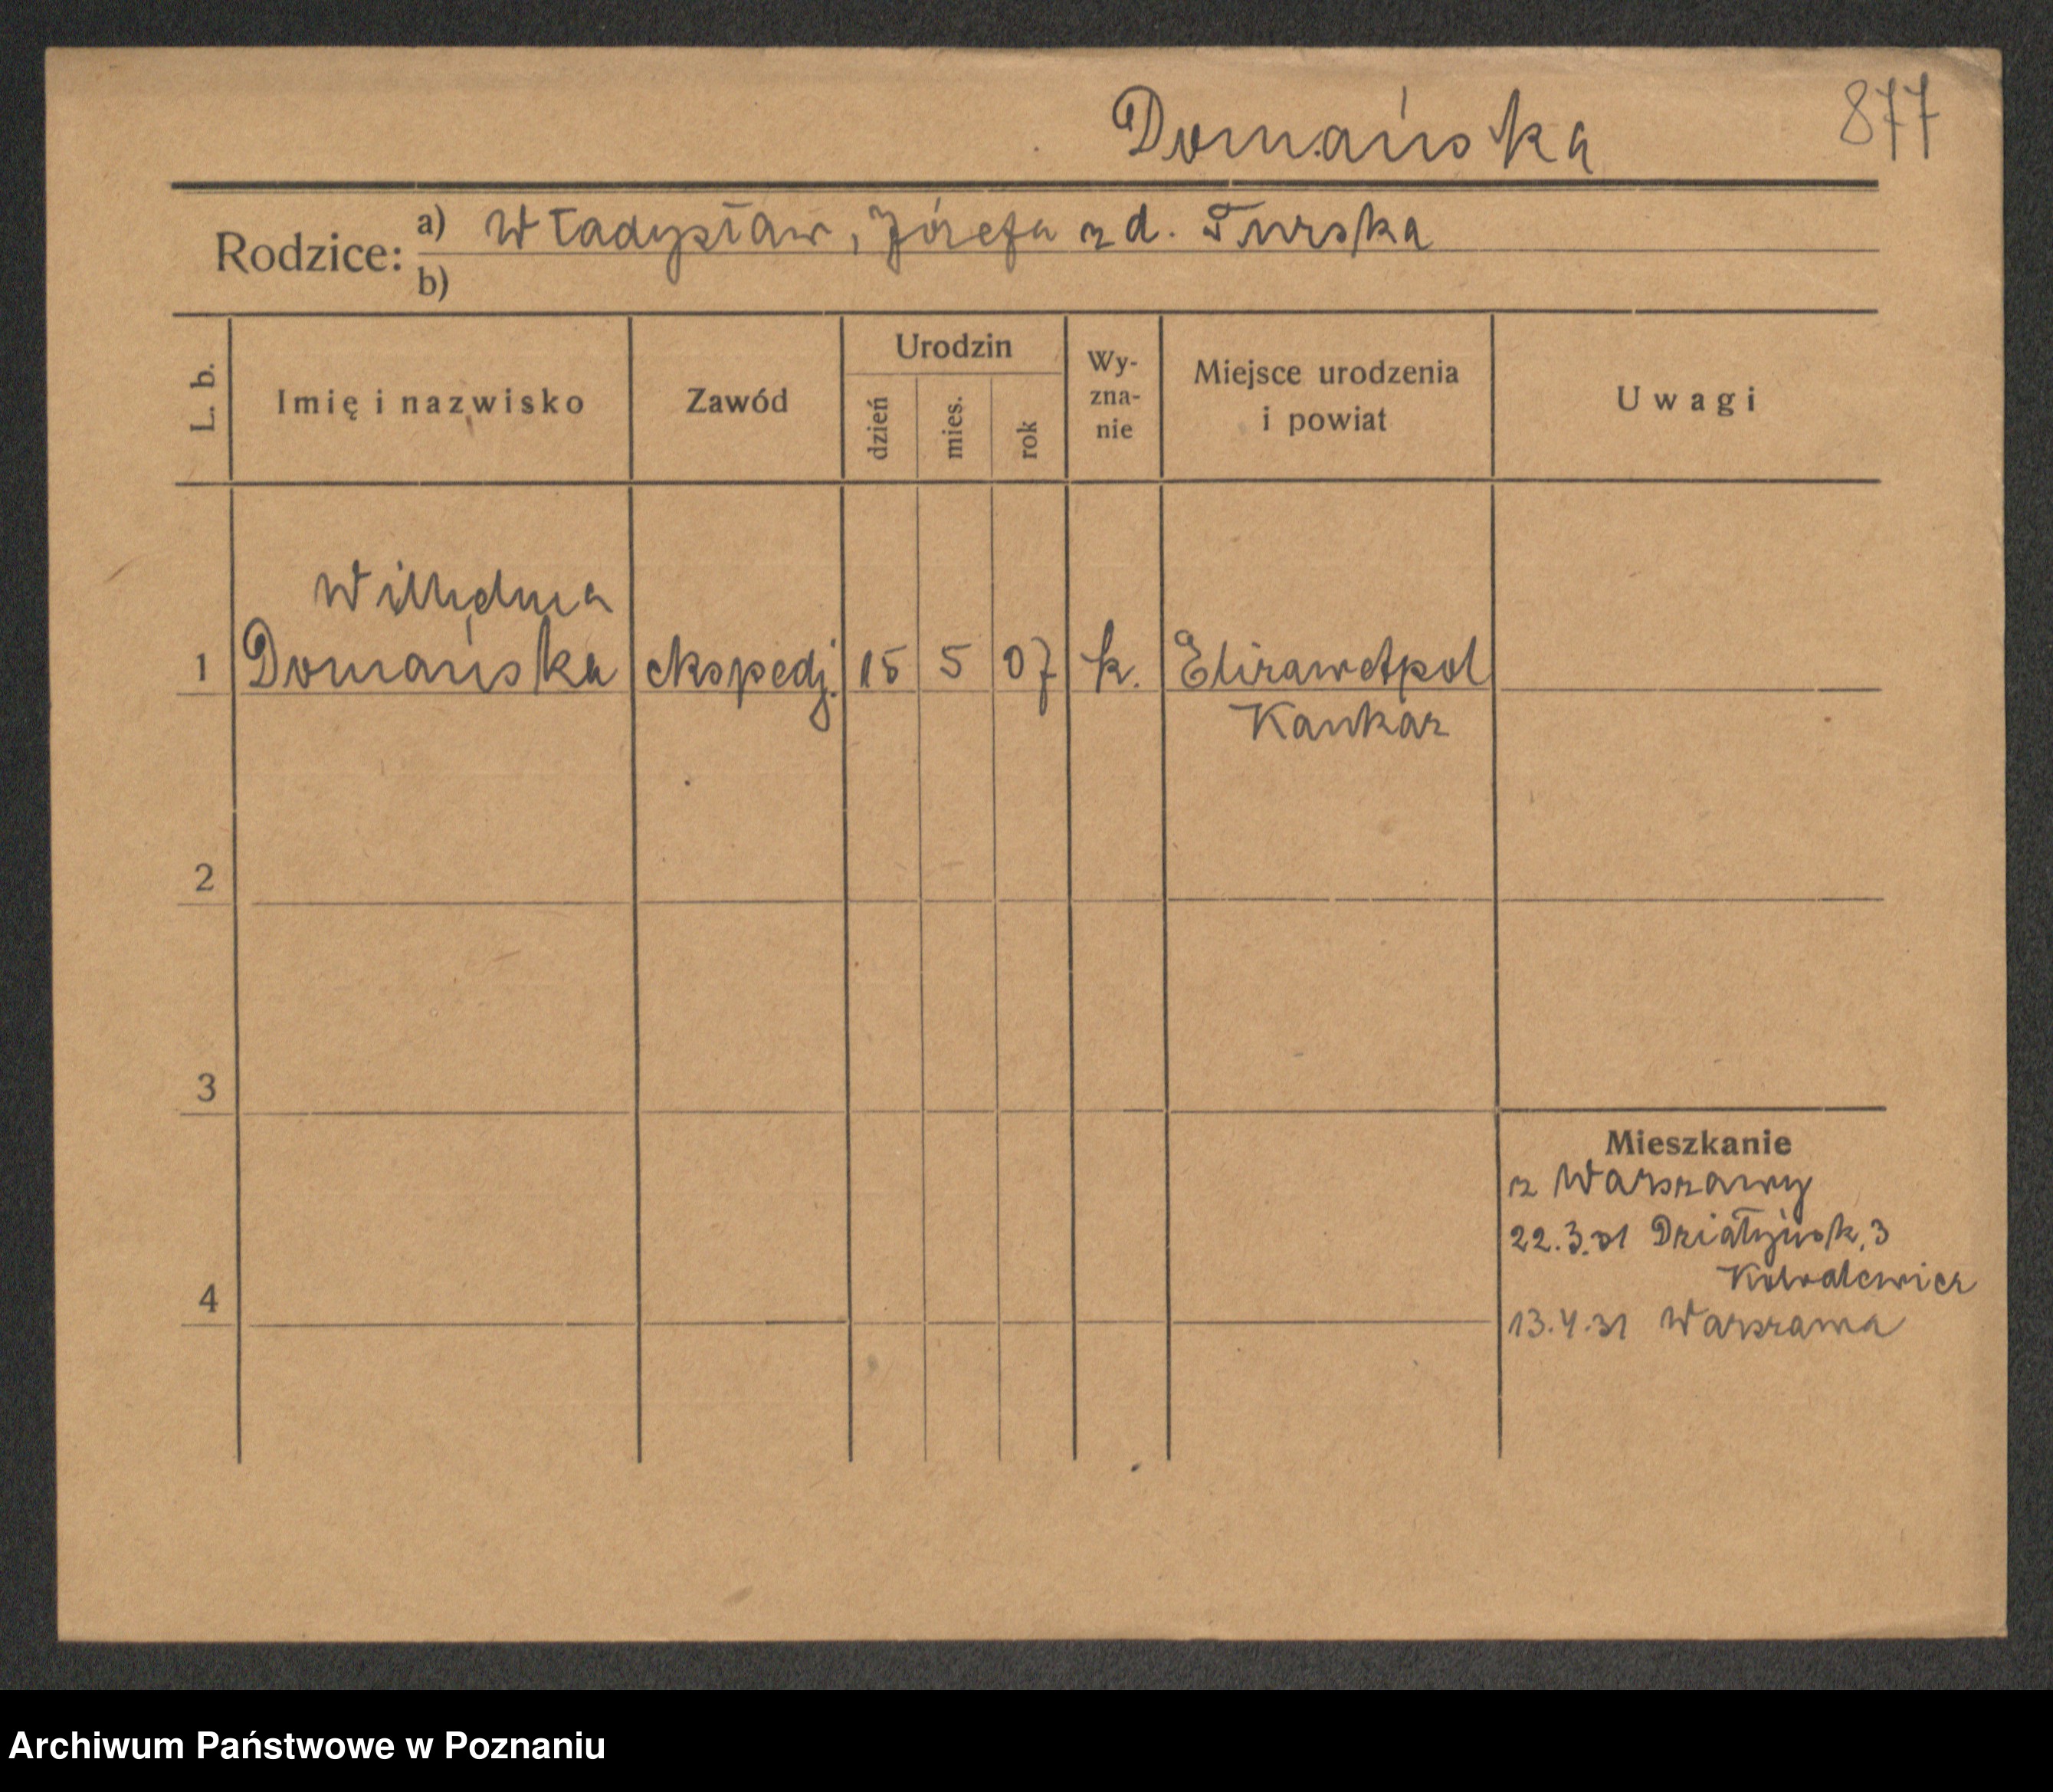 877
Domańska
Rodzice: a) Władysław, Józefa z d. Turska
b)
L. b. Imię i nazwisko Zawód Urodzin dzień mies. rok Wy-zna-nie Miejsce urodzenia i powiat Uwagi
Wilhelma
1 Domańska ekspedj. 15 5 07 k. Elizawetpol
Kaukaz
2
3
Mieszkanie
z Warszawy
22.3.31 Działyńsk. 3
Kowalewicz
4
13.4.31 Warszawa
Archiwum Państwowe w Poznaniu